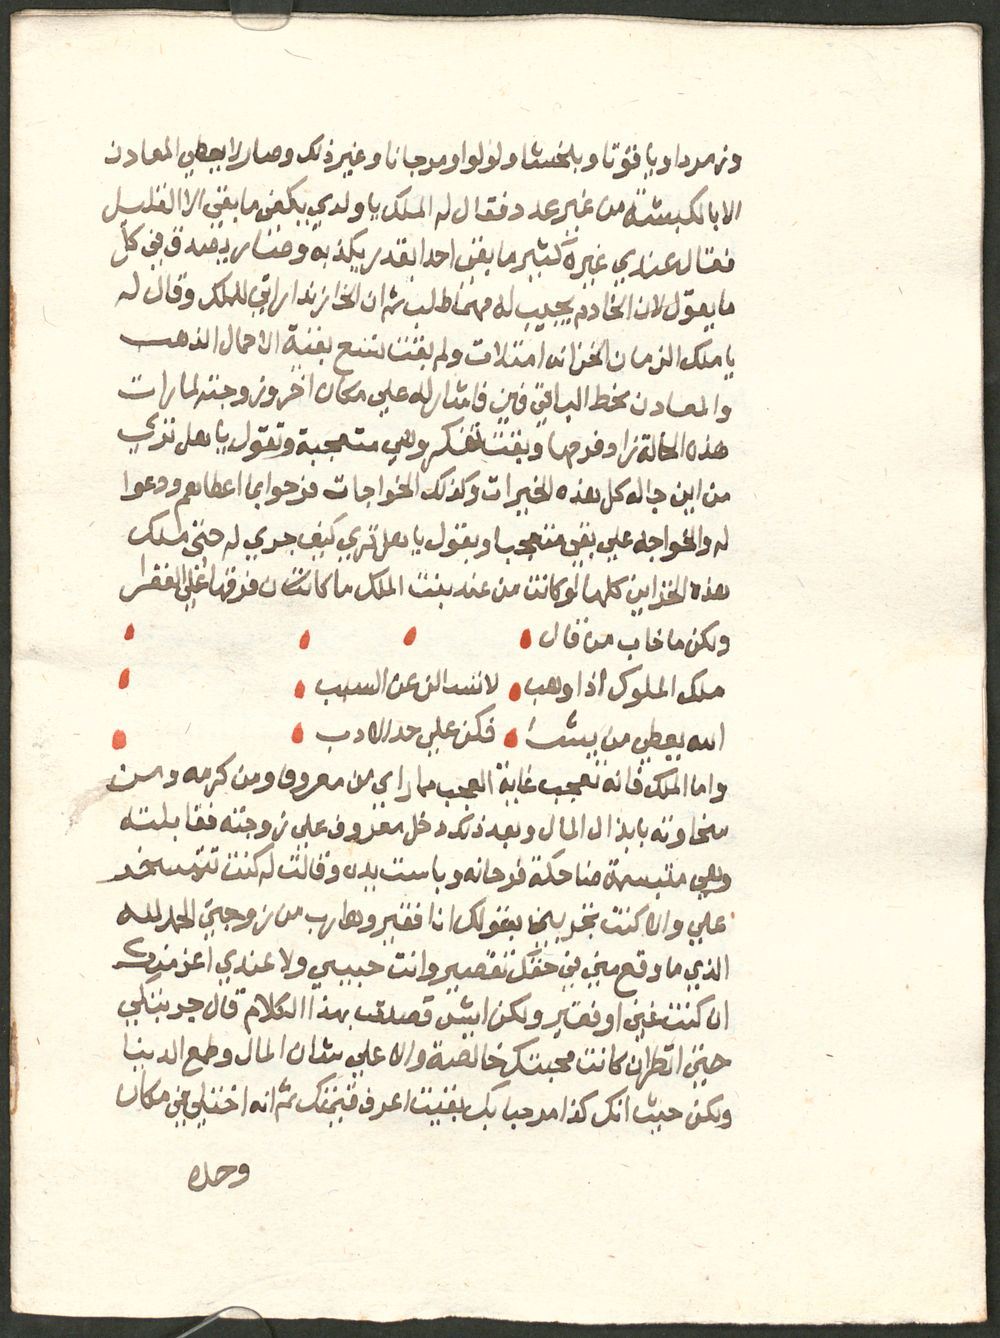 وزمردا وياقوتا وبلخشا ولولوا ومرجانا وغير ذلك وصار لا يعطي المعادن
الا بالكبشة من غير عدد فقال له الملك يا ولدي يكفي ما بقي الا القليل
فقال عندي غيره كثير ما بقي احدا بقدر يكذبه وصار يصدق في كل
ما يقول لان الخادم يجيب له مهما طلب ثم ان الخازندار اتي للملك وقال له
يا ملك الزمان الخزانه امتلات ولم بقت تسع بقية الاحمال الذهب
والمعادن نحط الباقي فين فاشار له علي مكان اخر وزوجته لما رات
هذه الحالة زاد فرحها وبقت تفكر وهي متعجبة وتقول يا هل تري
من اين جاله كل هذه الخيرات وكذلك الخواجات فرحوا بما اعطاهم ودعوا
له والخواجه علي بقي متعجبا ويقول يا هل تري كيف جري له حتي ملك
هذه الخزاين كلها لو كانت من عند بنت الملك ما كان فرقها علي الفقرا
ولكن ما خاب من قال
ملك الملوك اذا وهب لا تسالن عن السبب
الله يعطي من يشا فكن علي حد الادب
واما الملك فانه تعجب غاية العجب مما راي من معروف ومن كرمه ومن
سخاوته بابذال المال وبعد ذلك دخل معروف علي زوجته فقابلته
وهي متبسمة ضاحكة فرحانه وباست يده وقالت له كنت تتمسخر
علي والا كنت تجربني بقولك انا فقير وهارب من زوجتي الحمد لله
الذي ما وقع مني في حقك تقصير وانت حبيبي ولا عندي اعز منك
ان كنت غني او فقير ولكن ايش قصدك بهذا الكلام قال جربتكي
حتي انظر ان كانت محبتك خالصة والا علي شان المال وطمع الدنيا
ولكن حيث انك كذا مرحبا بك بقيت اعرف قيمتك ثم انه اختلي في مكان
وحده